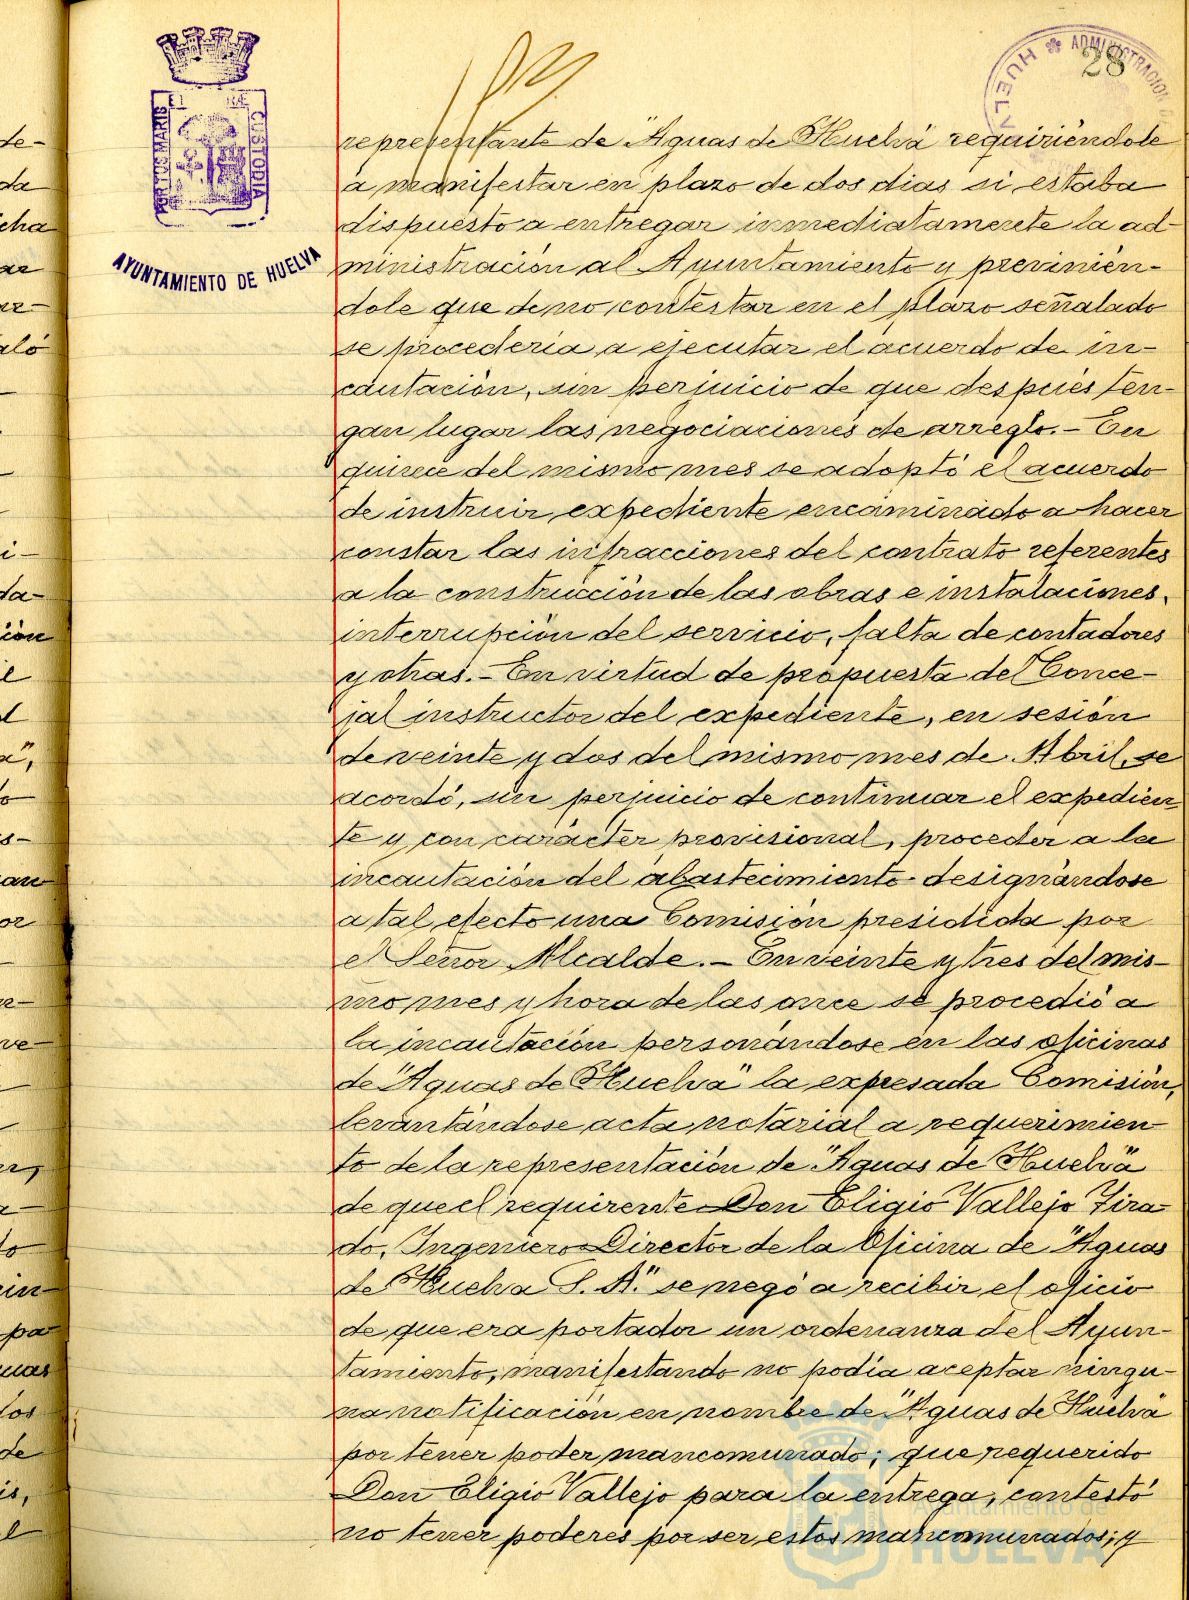 28
ADMINISTRACION
HUELVA
PORTUS MARIS ET TERRAE CUSTODIA
AYUNTAMIENTO DE HUELVA
representante de "Aguas de Huelva" requiriéndole
a manifestar en plazo de dos dias si estaba
dispuesto a entregar inmediatamente la ad-
ministración al Ayuntamiento y previnién-
dole que de no contestar en el plazo señalado
se procedería a ejecutar el acuerdo de in-
cautación, sin perjuicio de que después ten-
gan lugar las negociaciones de arreglo.- En
quince del mismo mes se adoptó el acuerdo
de instruir expediente encaminado a hacer
constar las infracciones del contrato referentes
a la construcción de las obras e instalaciones,
interrupción del servicio, falta de contadores
y otras.- En virtud de propuesta del Conce-
jal instructor del expediente, en sesión
de veinte y dos del mismo mes de Abril, se
acordó, sin perjuicio de continuar el expedien-
te y con carácter provisional, proceder a la
incautación del abastecimiento designándose
a tal efecto una Comisión presidida por
el Señor Alcalde.- En veinte y tres del mis-
mo mes y hora de las once se procedió a
la incautación personándose en las oficinas
de "Aguas de Huelva" la expresada Comisión,
levantándose acta notarial a requerimien-
to de la representación de "Aguas de Huelva"
de que el requirente Don Eligio Vallejo Tira-
do, Ingeniero Director de la Oficina de "Aguas
de Huelva S. A." se negó a recibir el oficio
de que era portador un ordenanza del Ayun-
tamiento, manifestando no podía aceptar ningu-
na notificación en nombre de "Aguas de Huelva"
por tener poder mancomunado; que requerido
Don Eligio Vallejo para la entrega, contestó
no tener poderes por ser estos mancomunados; y
Ayuntamiento de
HUELVA